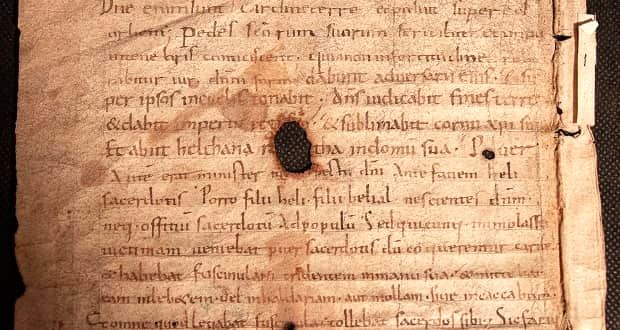 enim sunt Cardines terre & posuit super
orbem; Pedes scorum suorum servabit & impii
in tenebris conticescent. quia non in fortitudine
rabitur vir. dñm dabunt adversarii eius. & su
per ipsos in celis tonabit. Dñs iudicabit fines terre
& dabit & sublimabit cornu xpi sui
Et abiit helchana tha in domu sua. Puer
Aute erat minister dñi Ante faciem heli
sacerdotis Porro filii heli. filii belial nescientes dñm.
neq; offitiũ sacerdotũ Ad populũ Sed quicunq; immolass
victimam veniebat puer sacerdotis dũ coquerent carne
& habebat fuscinulam tridentem in manu sua & mitte
eam in aut in ollam. sive in caccabũ
& omne quod levabat tollebat sacerdos sibi. Sic
1